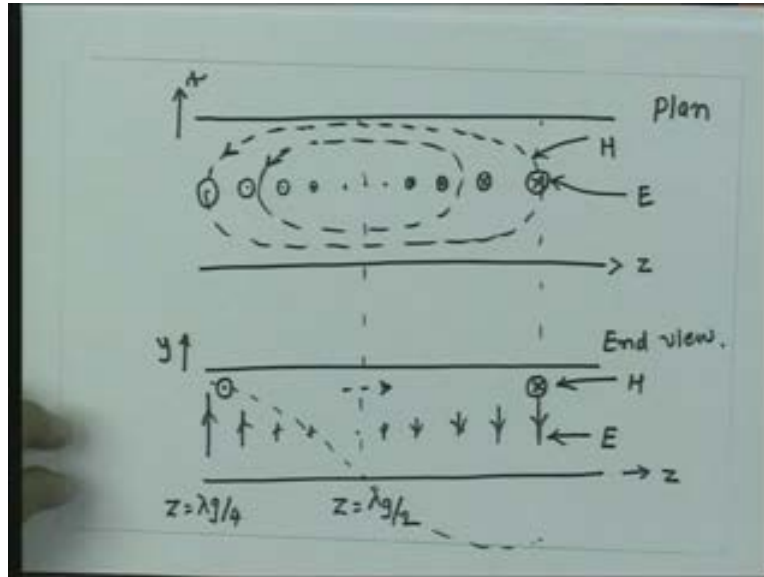 x
Plan
H
E
z
y
End view.
H
E
z
z = λg/4
z = λg/2